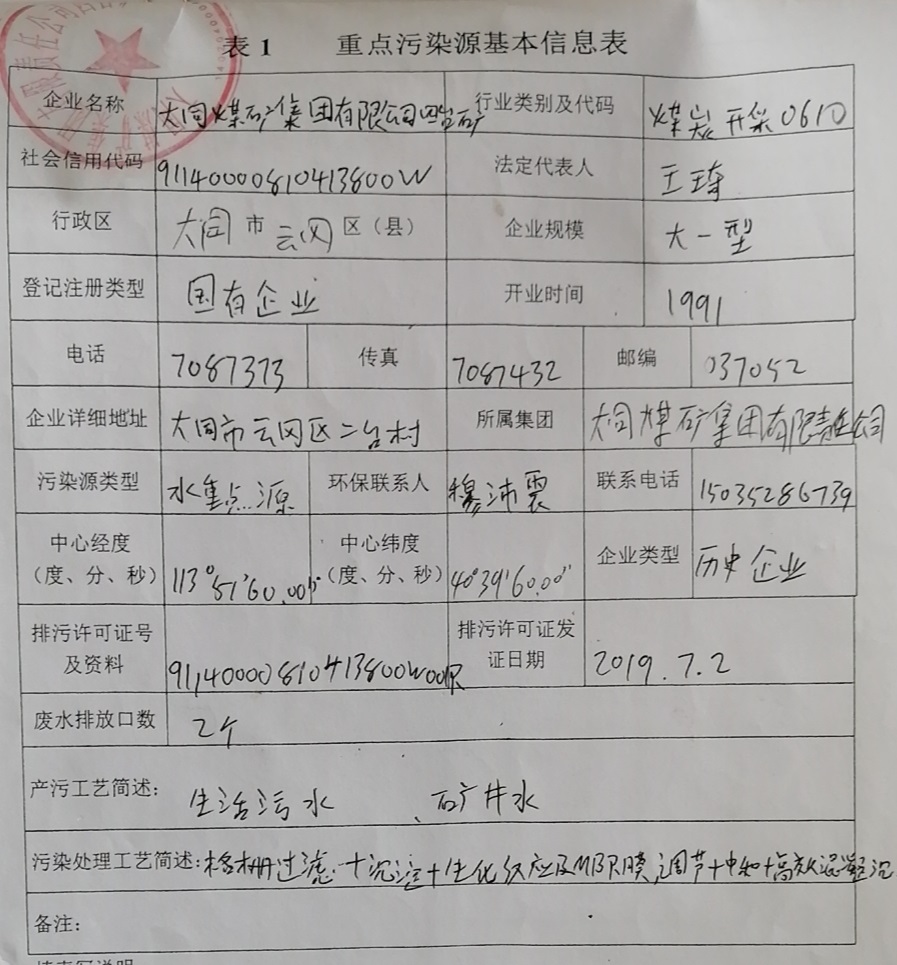 表1 重点污染源基本信息表
企业名称 大同煤矿集团有限公司四台矿 行业类别及代码 煤炭开采0610
社会信用代码 91140000810413800W 法定代表人 王琦
行政区 大同市云冈区（县） 企业规模 大一型
登记注册类型 国有企业 开业时间 1991
电话 7087373 传真 7087432 邮编 037052
企业详细地址 大同市云冈区二台村 所属集团 大同煤矿集团有限责任公司
污染源类型 水重点源 环保联系人 穆沛震 联系电话 15035286739
中心经度 中心纬度 企业类型 历史企业
（度、分、秒） 113°51'60.00" （度、分、秒） 40°39'60.00"
排污许可证号 排污许可证发
及资料 91140000810413800W00R 证日期 2019.7.2
废水排放口数 2个
产污工艺简述： 生活污水、矿井水
污染处理工艺简述：格栅过滤+沉淀+生化反应及MBR膜，调节+中和+高效混凝沉
备注：